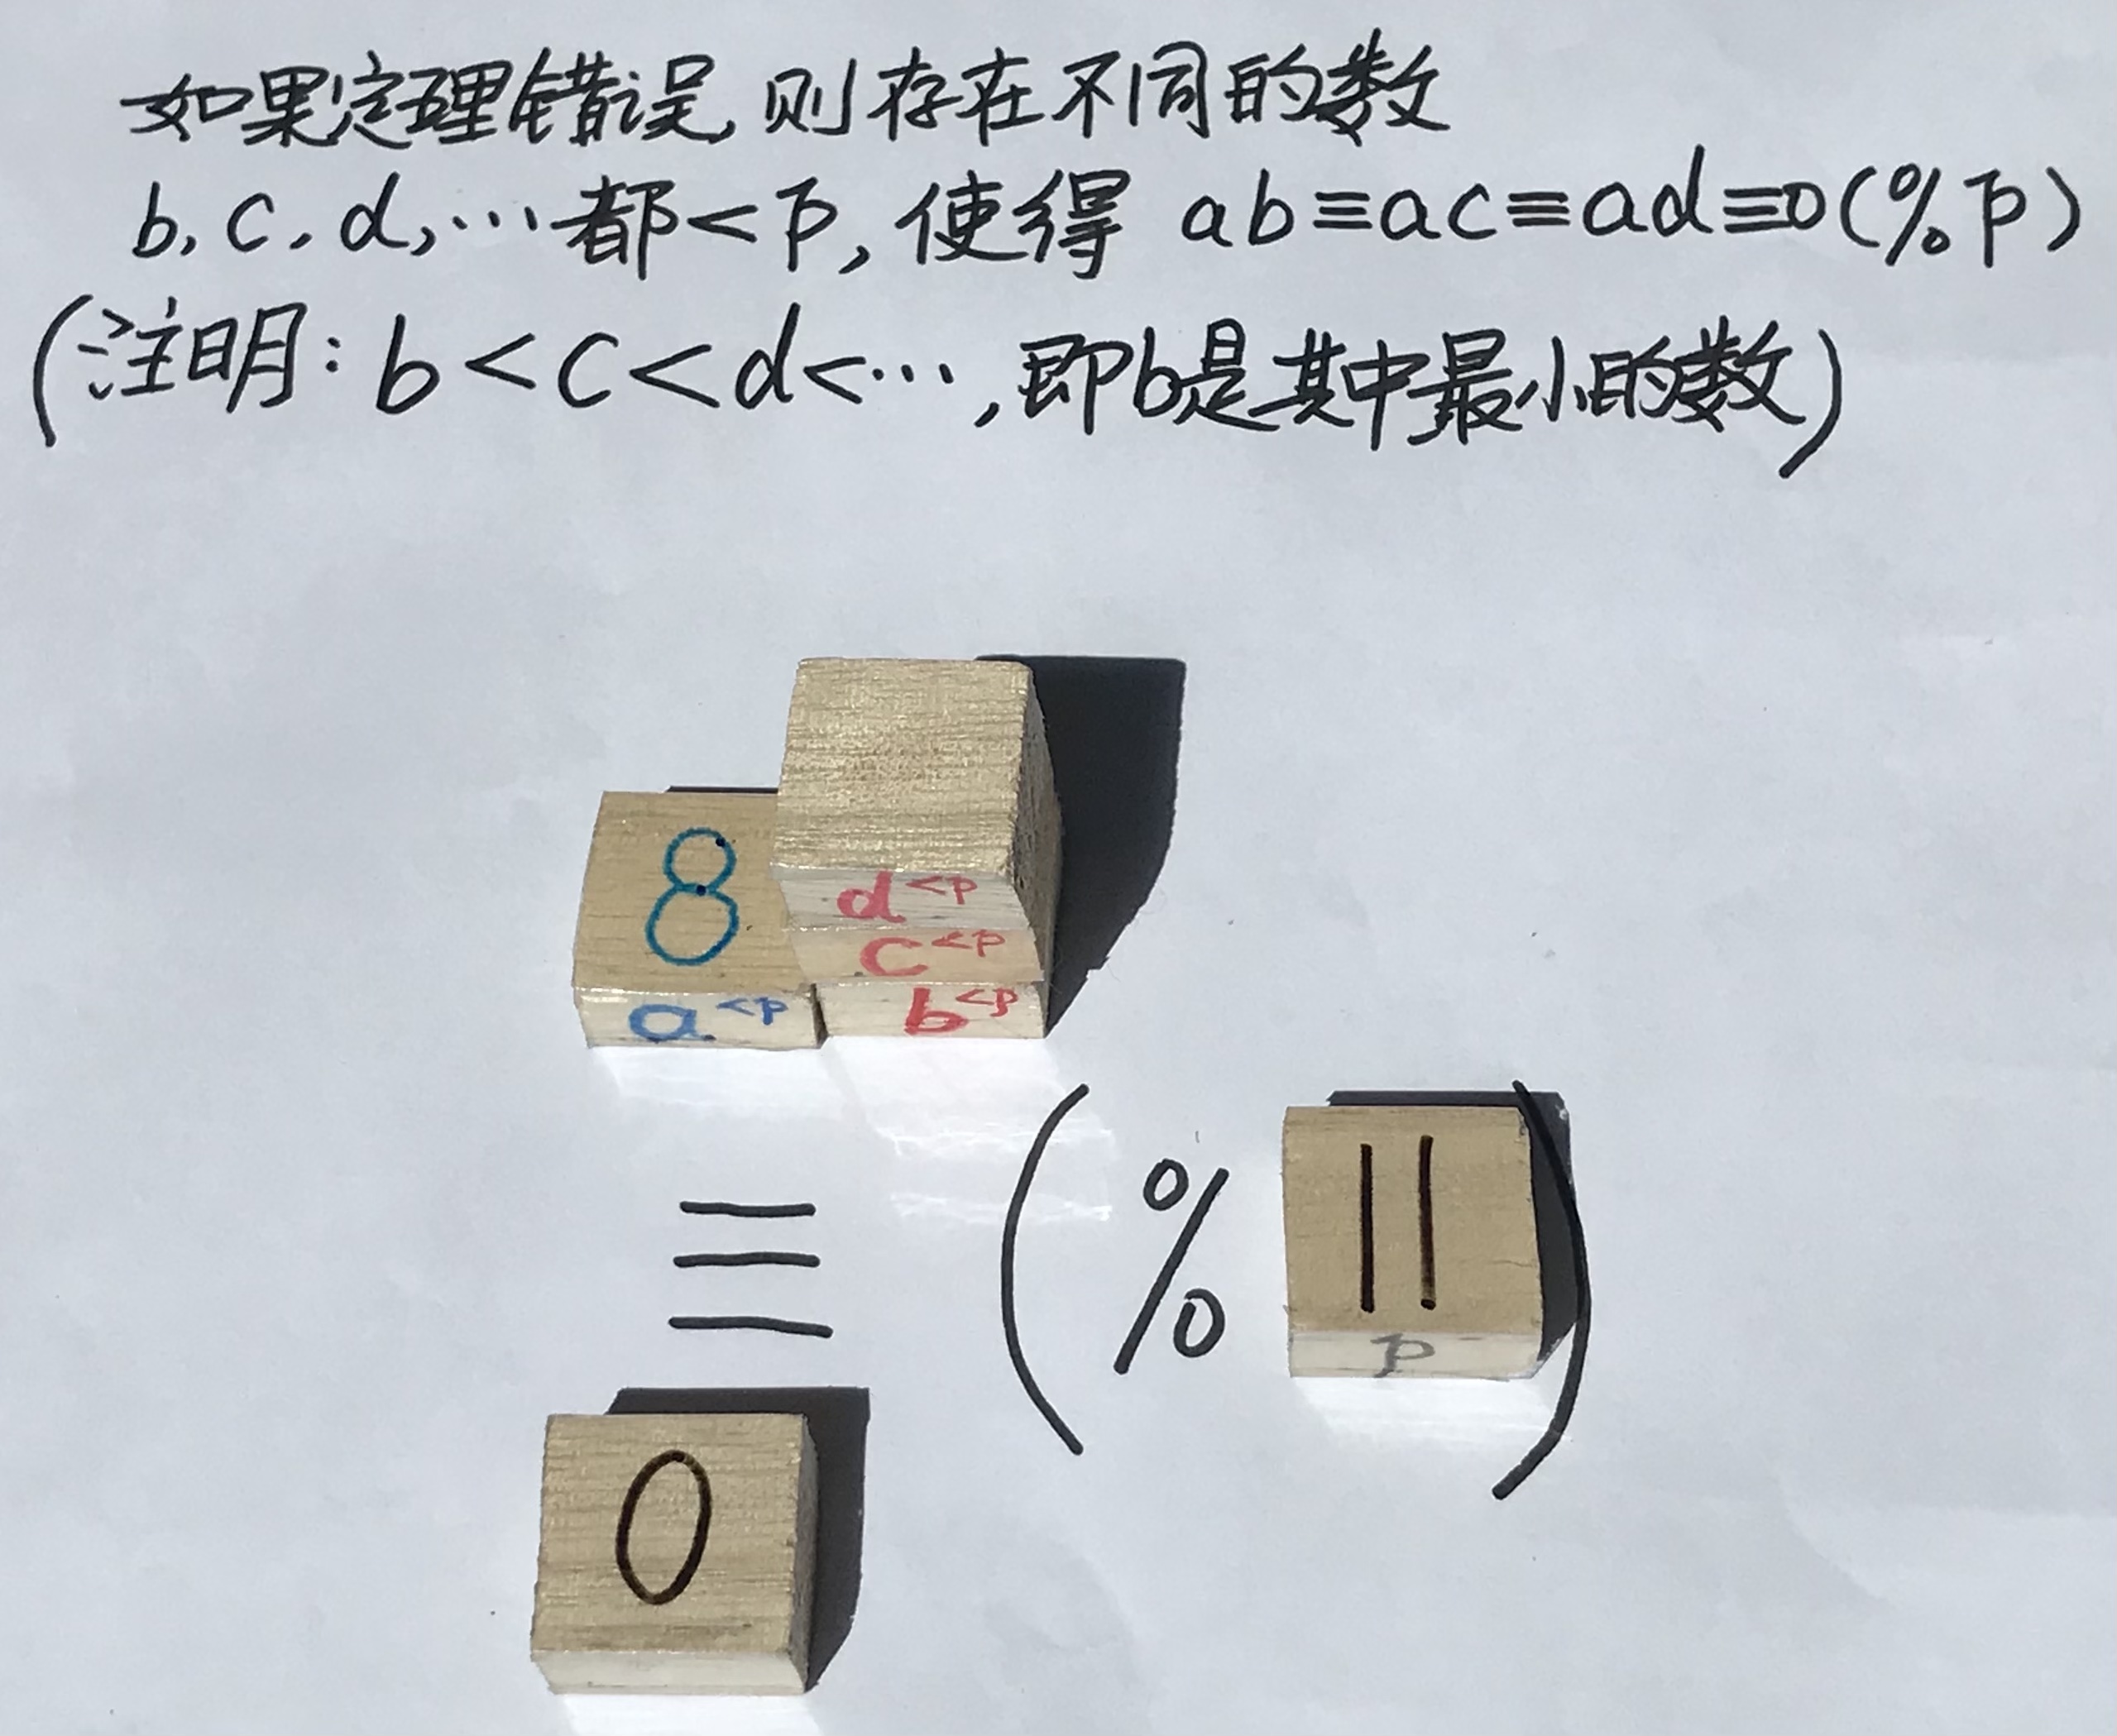 如果定理错误,则存在不同的数
b,c,d,…都<p,使得 ab≡ac≡ad≡0(%p)
(注明:b<c<d<…,即b是其中最小的数)
8
d<p
c<p
a<p b<p
≡ (% 11)
p
0